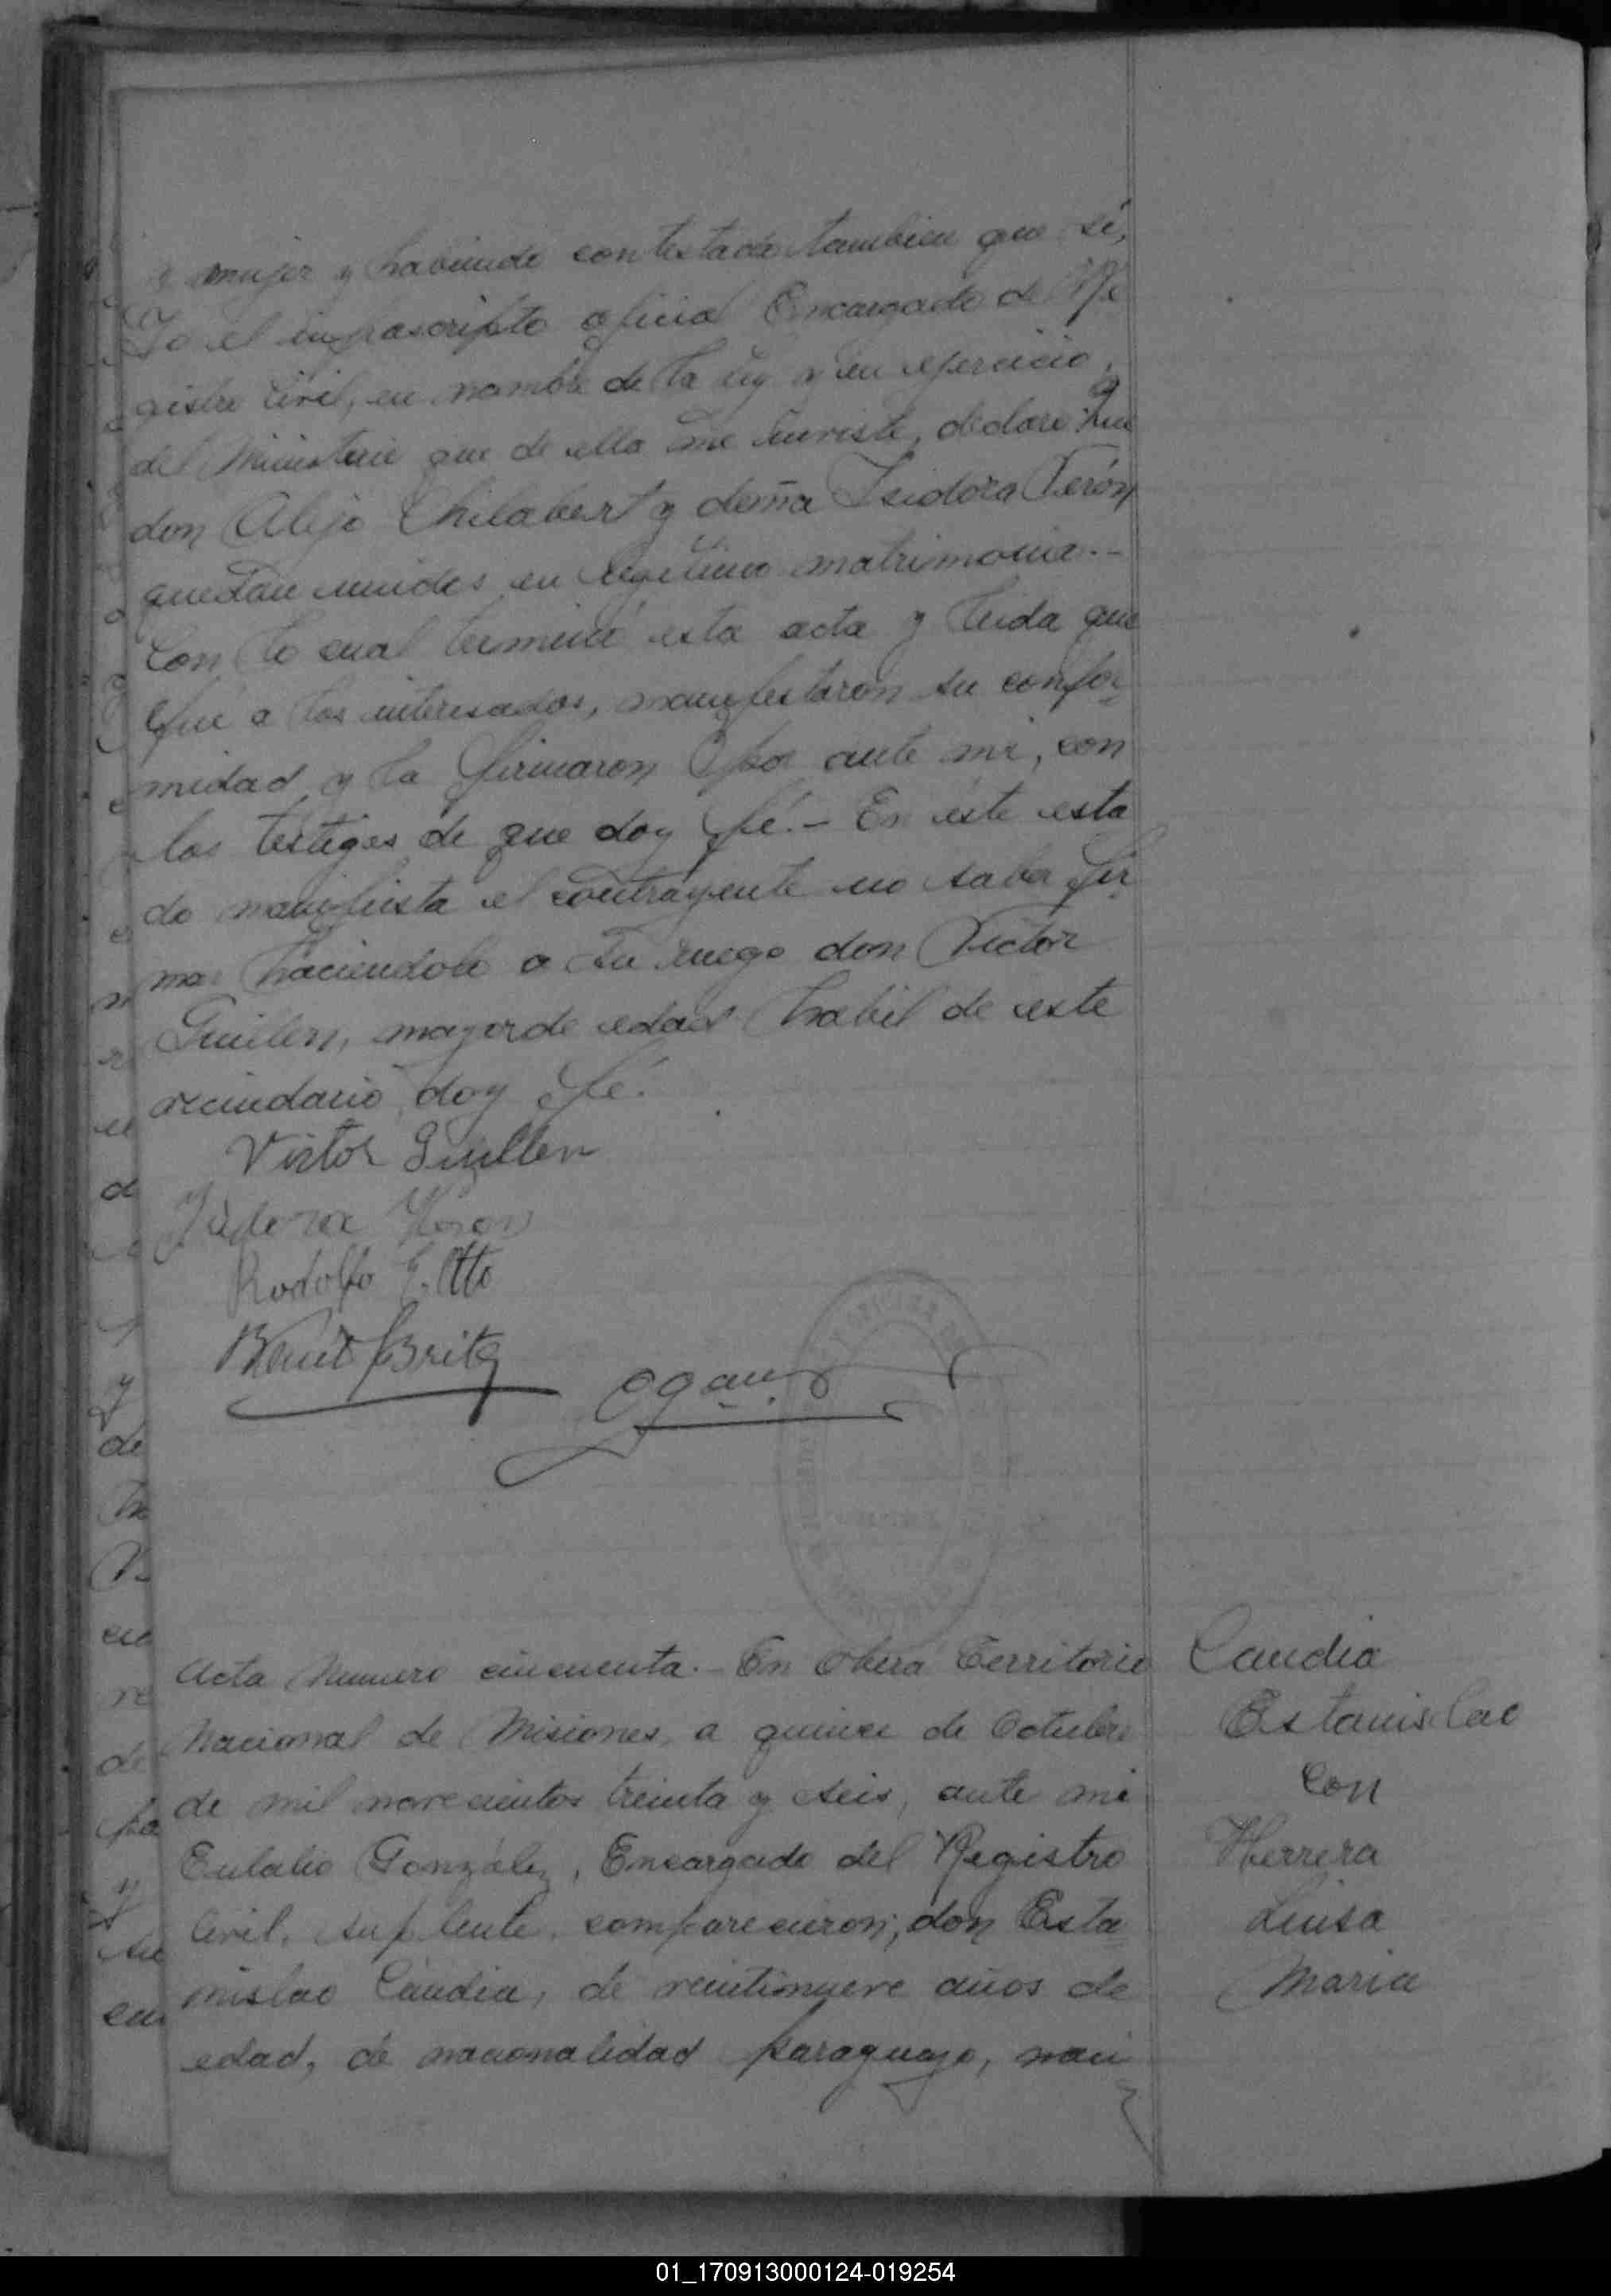 y mujer y habiendo contestado tambien que sí,
Yo el infrascripto oficial Encargado del Re
gistro Civil, en nombre de la ley y en ejercicio,
del Ministerio que de ella me inviste, declaro que
don Alejo Chilabert y doña Isidora Terón
quedan unidos en legitimo matrimonio.-
Con lo cual terminó esta acta y leida que
fué a los interesados, manifestaron su confor
midad y la firmaron por ante mi, con
los testigos de que doy fé.- En este esta
do manifiesta el contrayente no saber fir
mar haciendolo a su ruego don Victor
Guillen, mayor de edad habil de este
vecindario doy fé.
Victor Guillen
Isidora
Rodolfo E. Otto
Benit Britez
Acta Numero cincuenta.- En Oberá Territorio
Nacional de Misiones, a quince de Octubre
de mil novecientos treinta y seis, ante mi
Eulalio González, Encargado del Registro
Civil, suplente, comparecieron; don Esta
nislao Candia, de veintinueve años de
edad, de nacionalidad paraguayo, naci
Candia
Estanislao
con
Herrera
Luisa
Maria
01_170913000124-019254